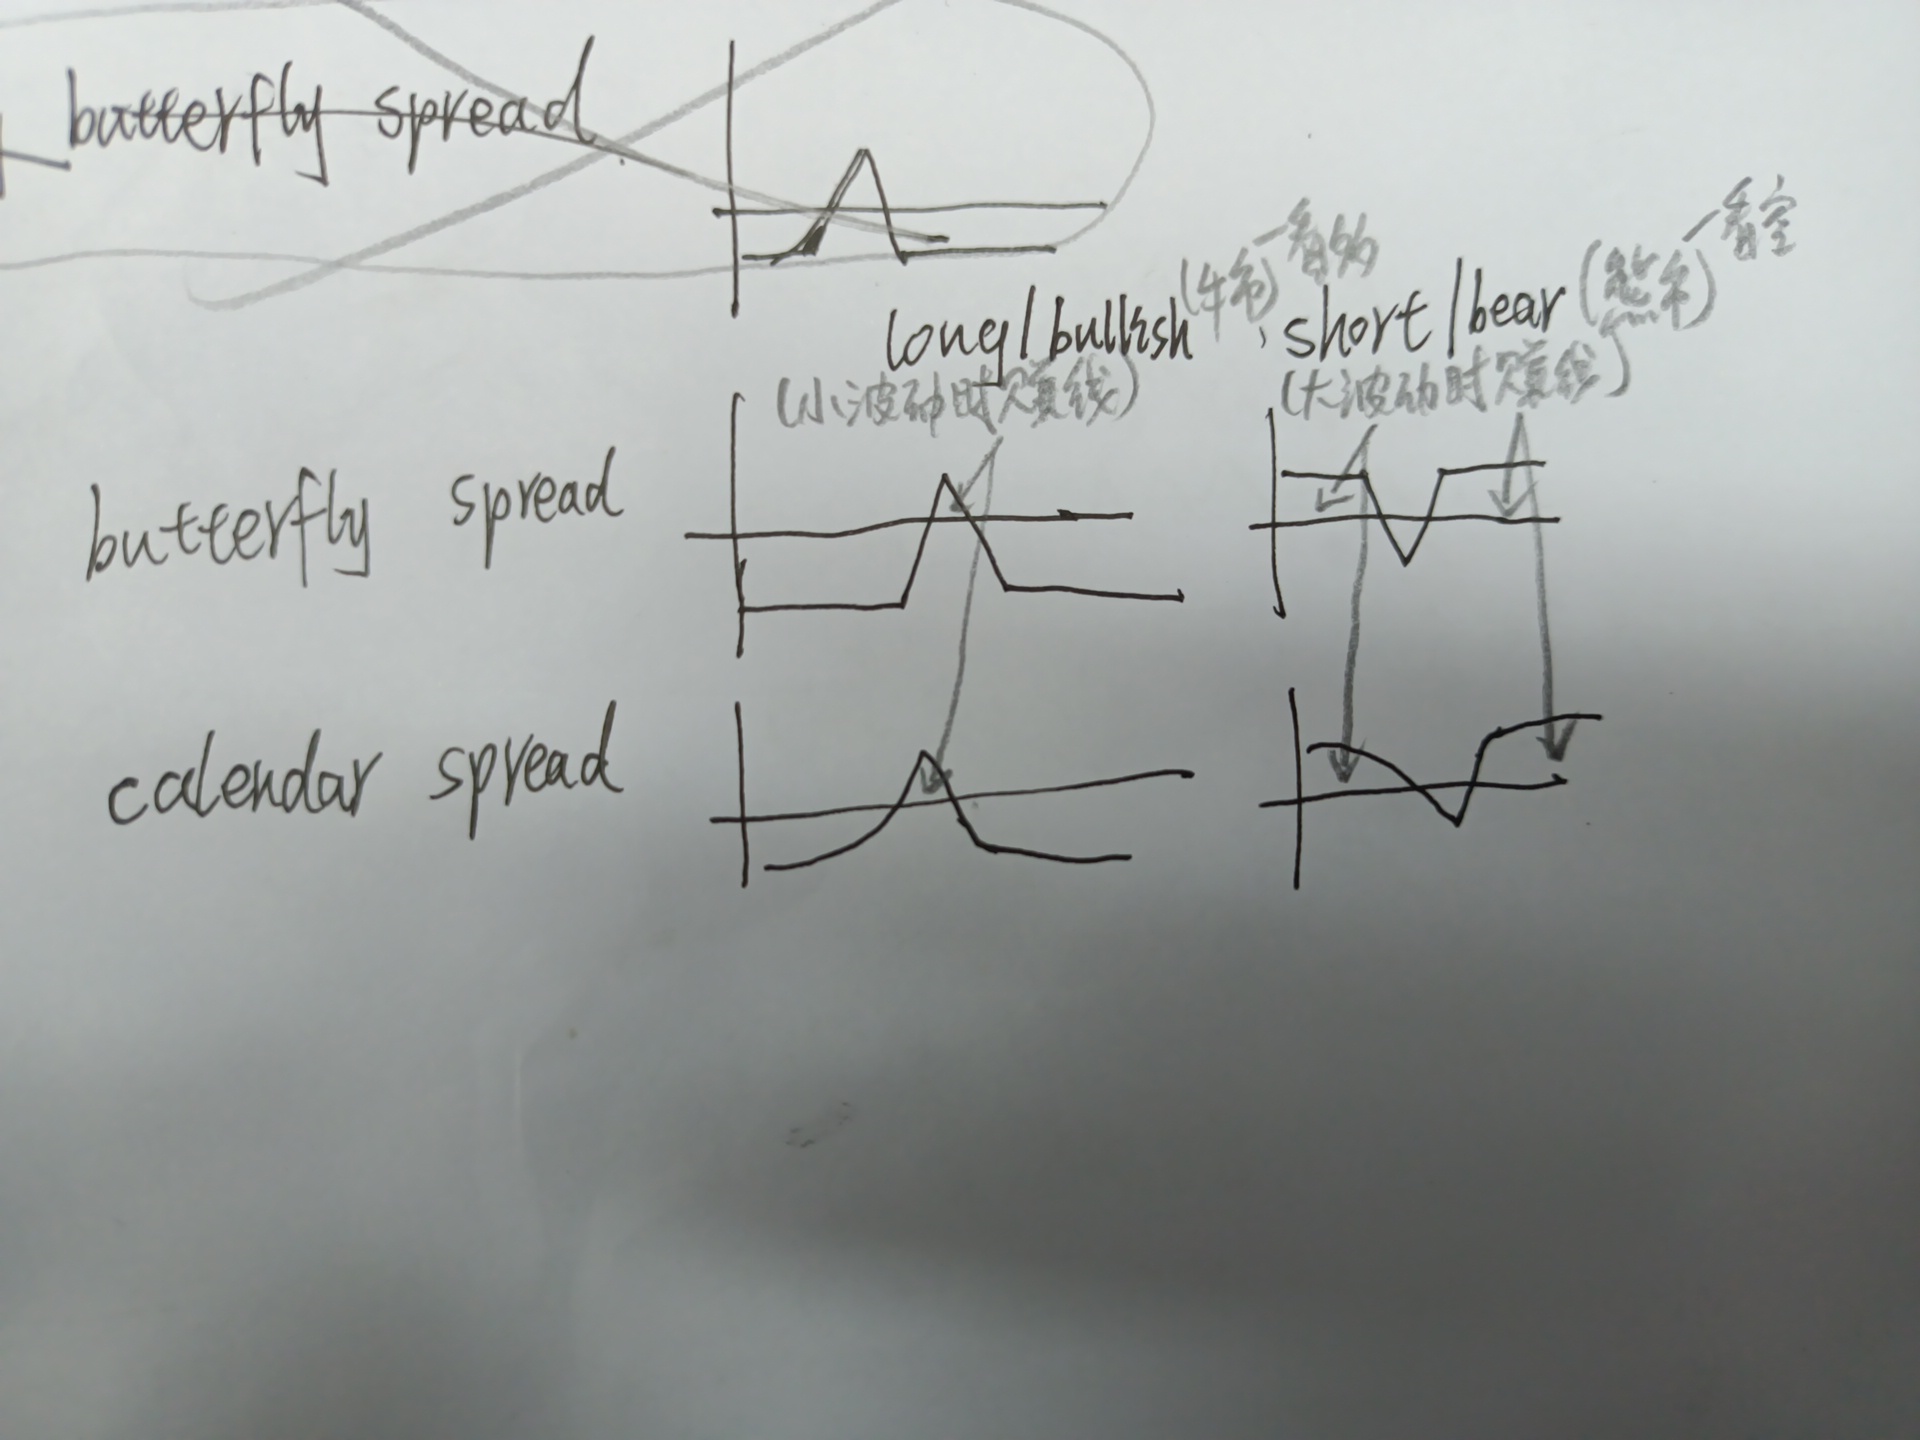 butterfly spread
long/bullish (牛市) 看多, short/bear (熊市) 看空
(小波动时赚钱) (大波动时赚钱)
butterfly spread
calendar spread